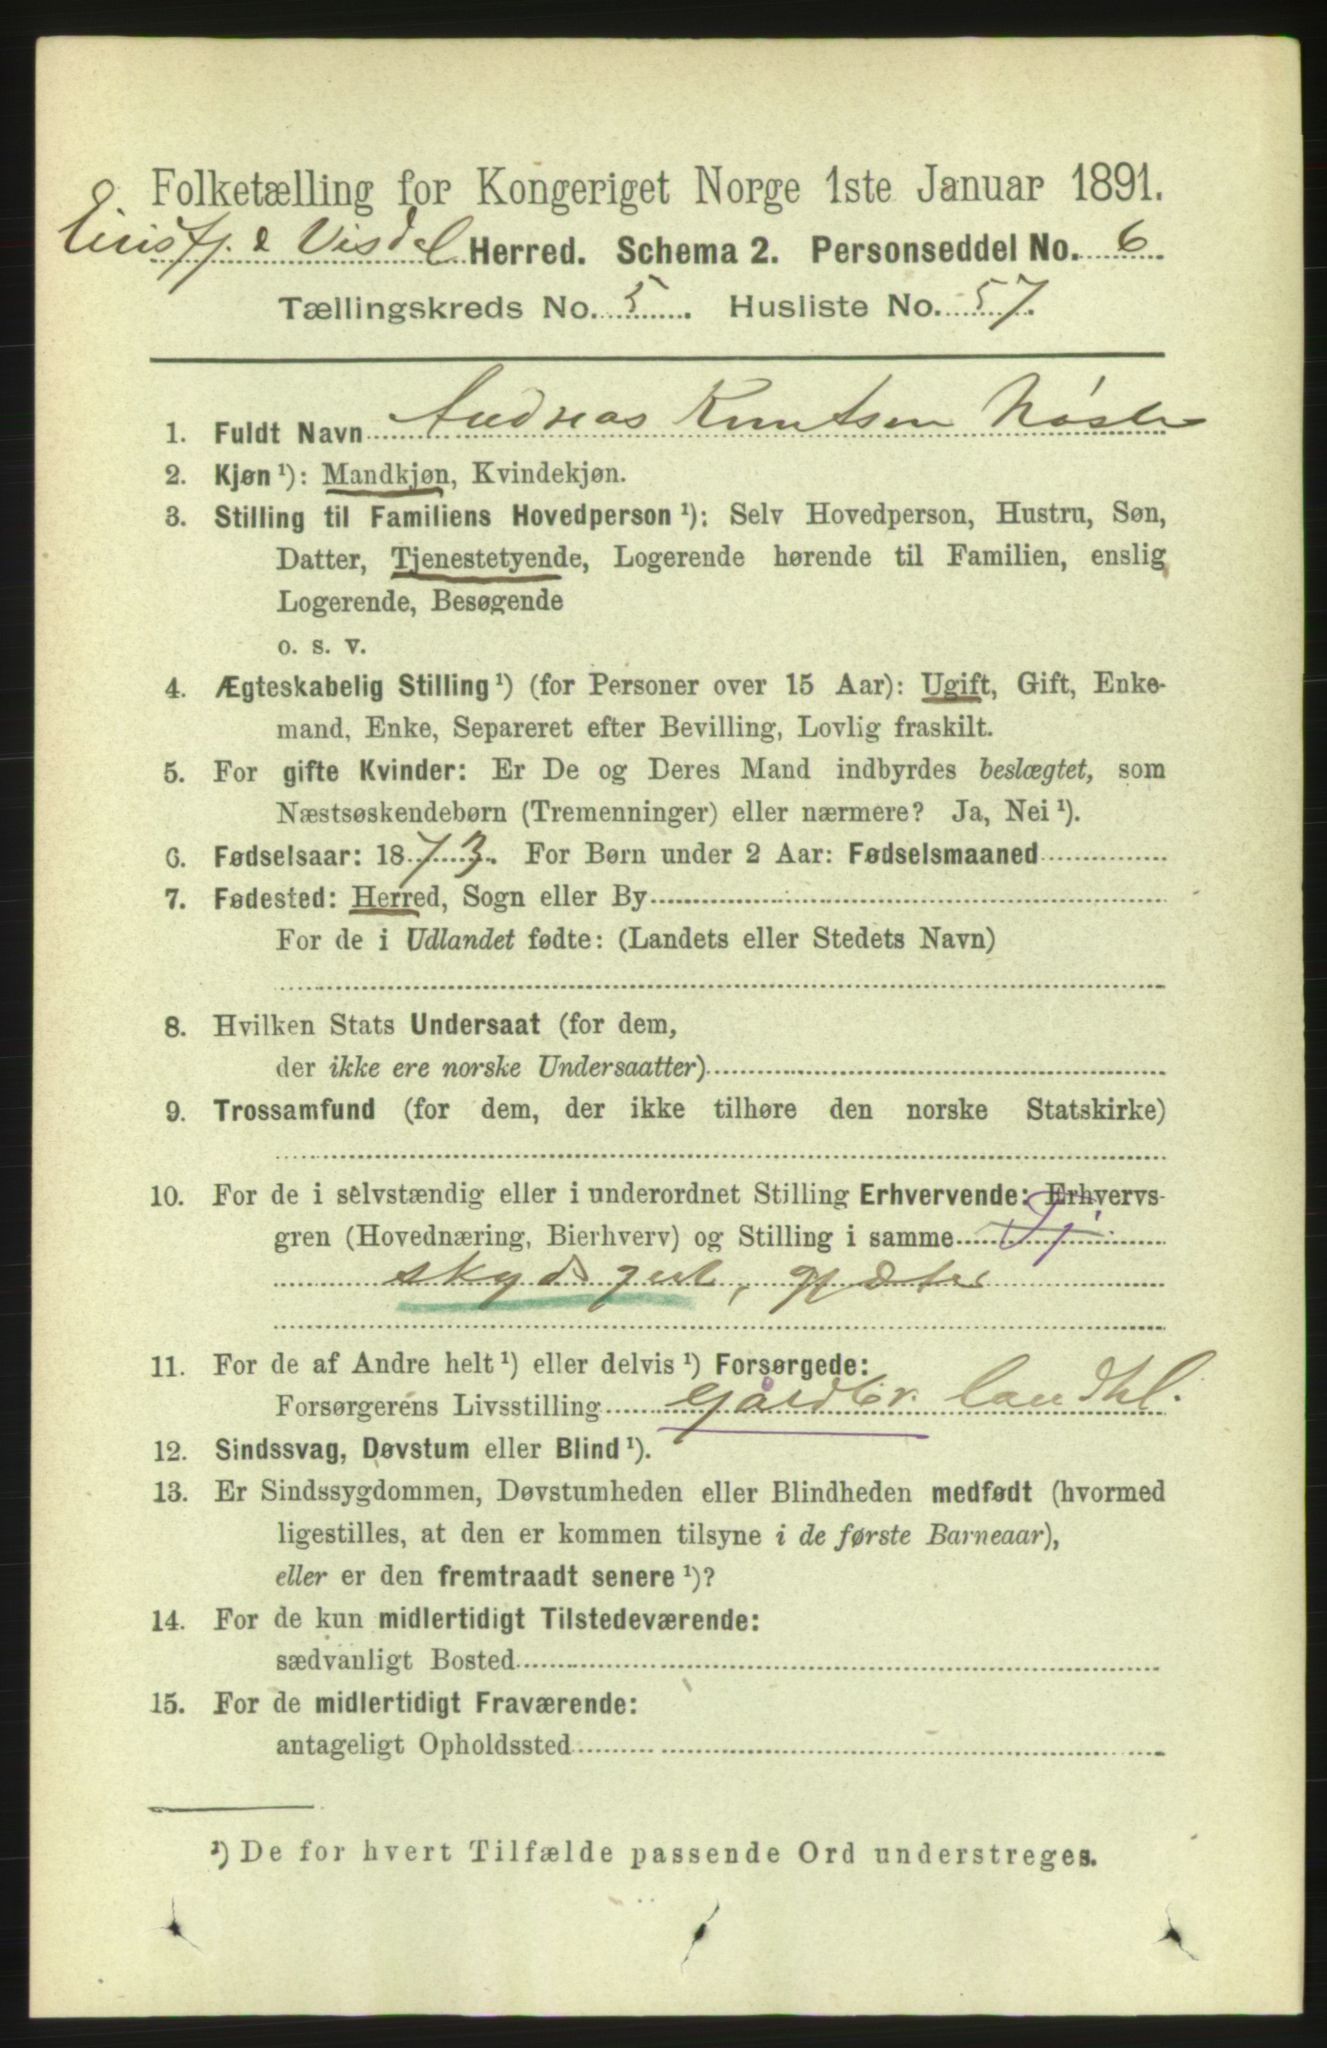 Folketælling for Kongeriget Norge 1ste Januar 1891.
Eirisfj. & Visdal Herred. Schema 2. Personseddel No. 6
Tællingskreds No. 5. Husliste No. 57.
1. Fuldt Navn Andreas Knutsen Nøste
2. Kjøn ¹): Mandkjøn, Kvindekjøn.
3. Stilling til Familiens Hovedperson ¹): Selv Hovedperson, Hustru, Søn,
Datter, Tjenestetyende, Logerende hørende til Familien, enslig
Logerende, Besøgende
o. s. v.
4. Ægteskabelig Stilling ¹) (for Personer over 15 Aar): Ugift, Gift, Enke-
mand, Enke, Separeret efter Bevilling, Lovlig fraskilt.
5. For gifte Kvinder: Er De og Deres Mand indbyrdes beslægtet, som
Næstsøskendebørn (Tremenninger) eller nærmere? Ja, Nei ¹).
6. Fødselsaar: 1873. For Børn under 2 Aar: Fødselsmaaned
7. Fødested: Herred, Sogn eller By
For de i Udlandet fødte: (Landets eller Stedets Navn)
8. Hvilken Stats Undersaat (for dem,
der ikke ere norske Undersaatter)
9. Trossamfund (for dem, der ikke tilhøre den norske Statskirke)
10. For de i selvstændig eller i underordnet Stilling Erhvervende: Erhvervs-
gren (Hovednæring, Bierhverv) og Stilling i samme Tj.
skydsgut, gjæter
11. For de af Andre helt ¹) eller delvis ¹) Forsørgede:
Forsørgerens Livsstilling gårdbr. landhl.
12. Sindssvag, Døvstum eller Blind ¹).
13. Er Sindssygdommen, Døvstumheden eller Blindheden medfødt (hvormed
ligestilles, at den er kommen tilsyne i de første Barneaar),
eller er den fremtraadt senere ¹)?
14. For de kun midlertidigt Tilstedeværende:
sædvanligt Bosted
15. For de midlertidigt Fraværende:
antageligt Opholdssted
¹) De for hvert Tilfælde passende Ord understreges.